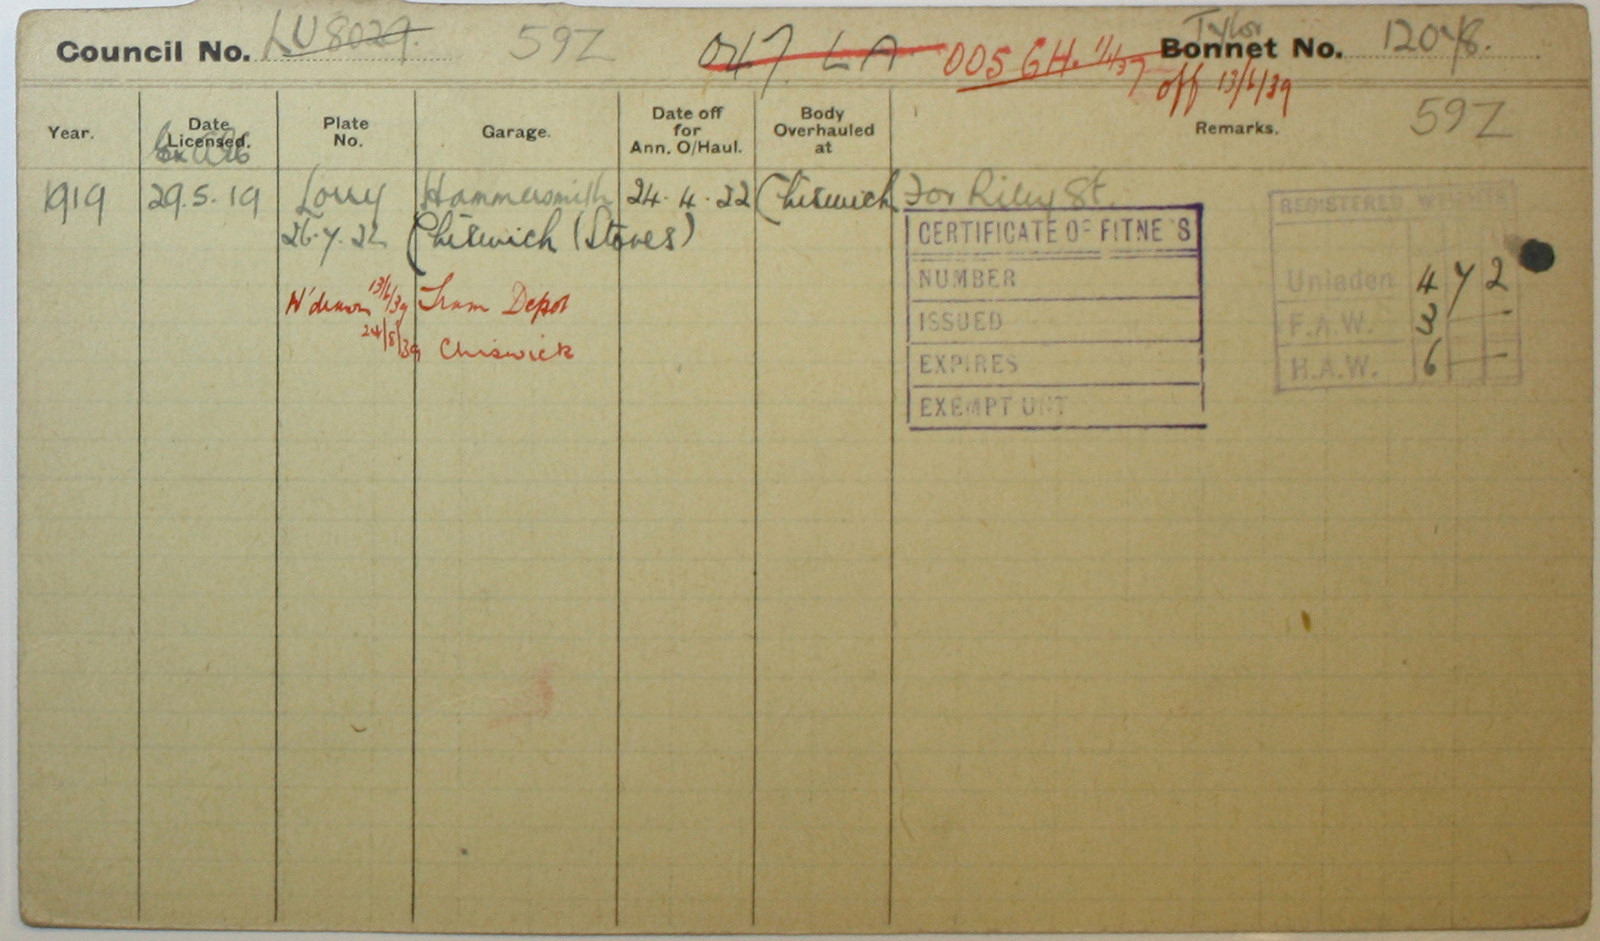 Council No. LU 8029. 59Z 047 LA 005 GH. 1/1/37 Taylor Bonnet No. 12048.
off 13/6/39
Year. Date Licensed. Plate No. Garage. Date off for Ann. O/Haul. Body Overhauled at Remarks. 59Z
1919 29.5.19 Lorry Hammersmith 24.4.22 Chiswick For Riley St.
26.7.22 Chiswick (Stores)
W'drawn 13/6/39 Tram Depot
24/8/39 Chiswick
CERTIFICATE OF FITNE S
NUMBER
ISSUED
EXPIRES
EXEMPT UNT
REGISTERED WEIGHTS
Unladen 4 7 2
F.A.W. 3 — —
H.A.W. 6 — —